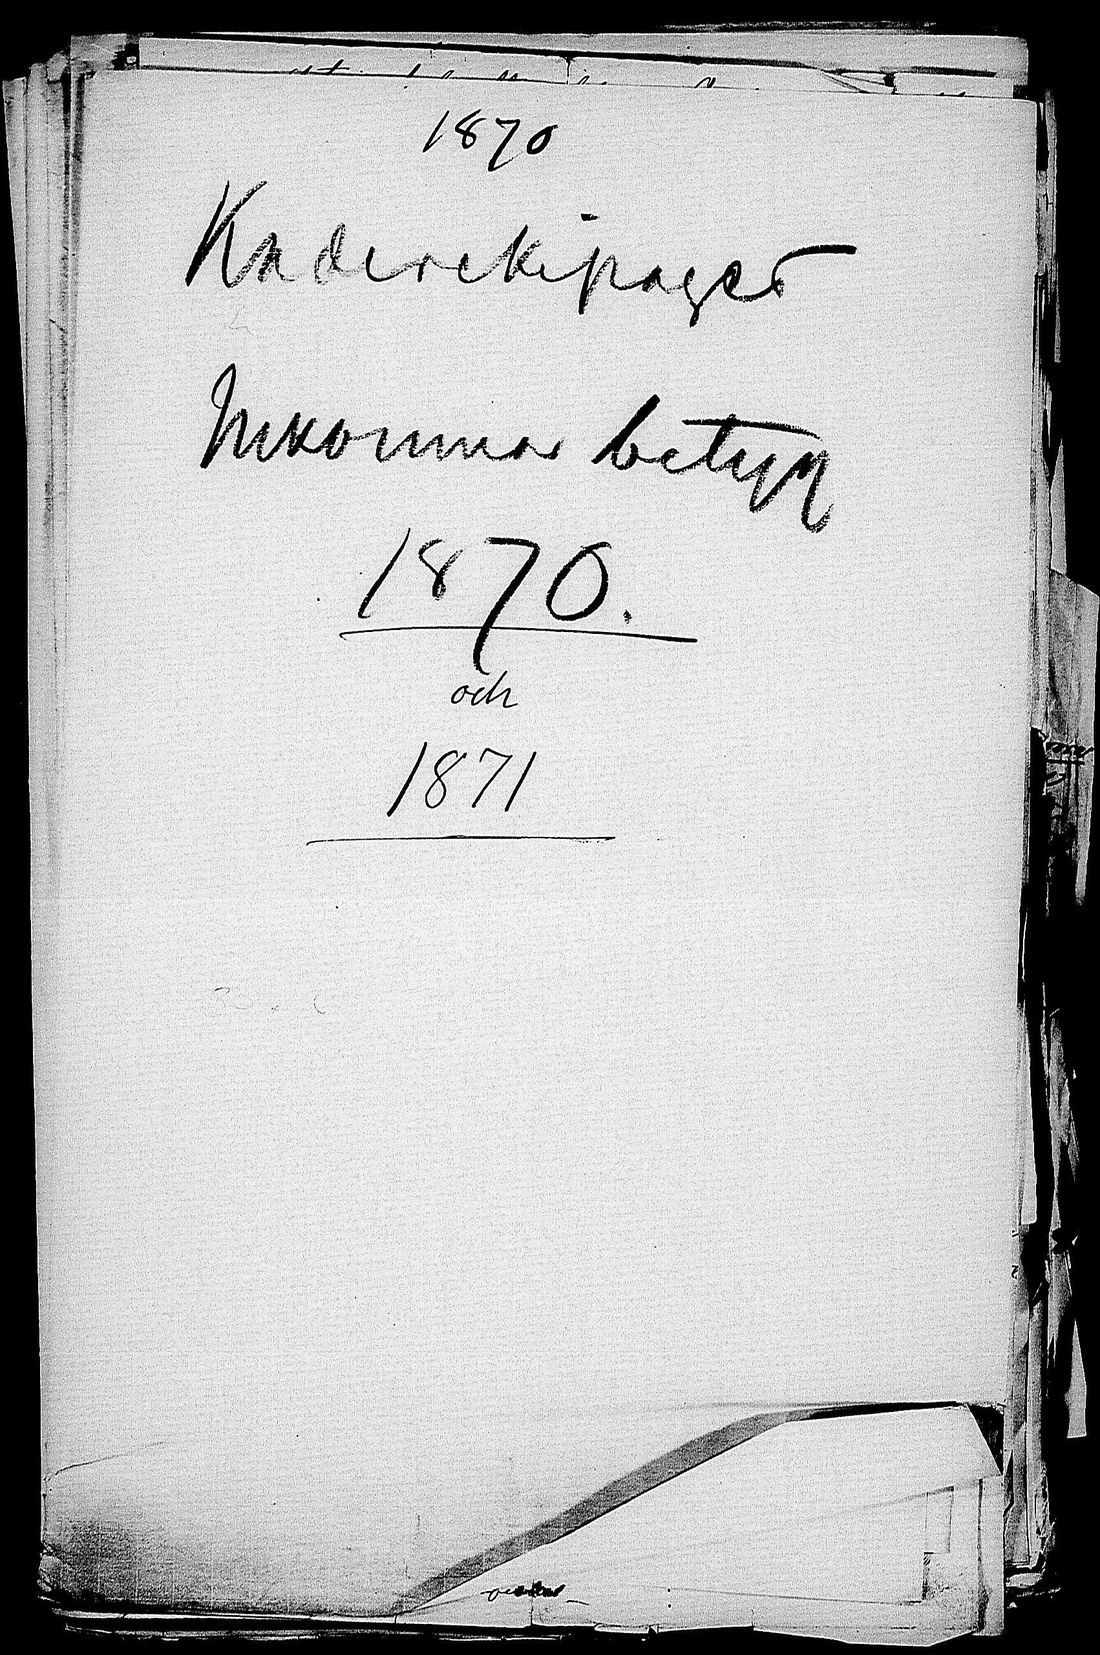 1870
Kaderekipaget
Inkomna betyg
1870.
och
1871